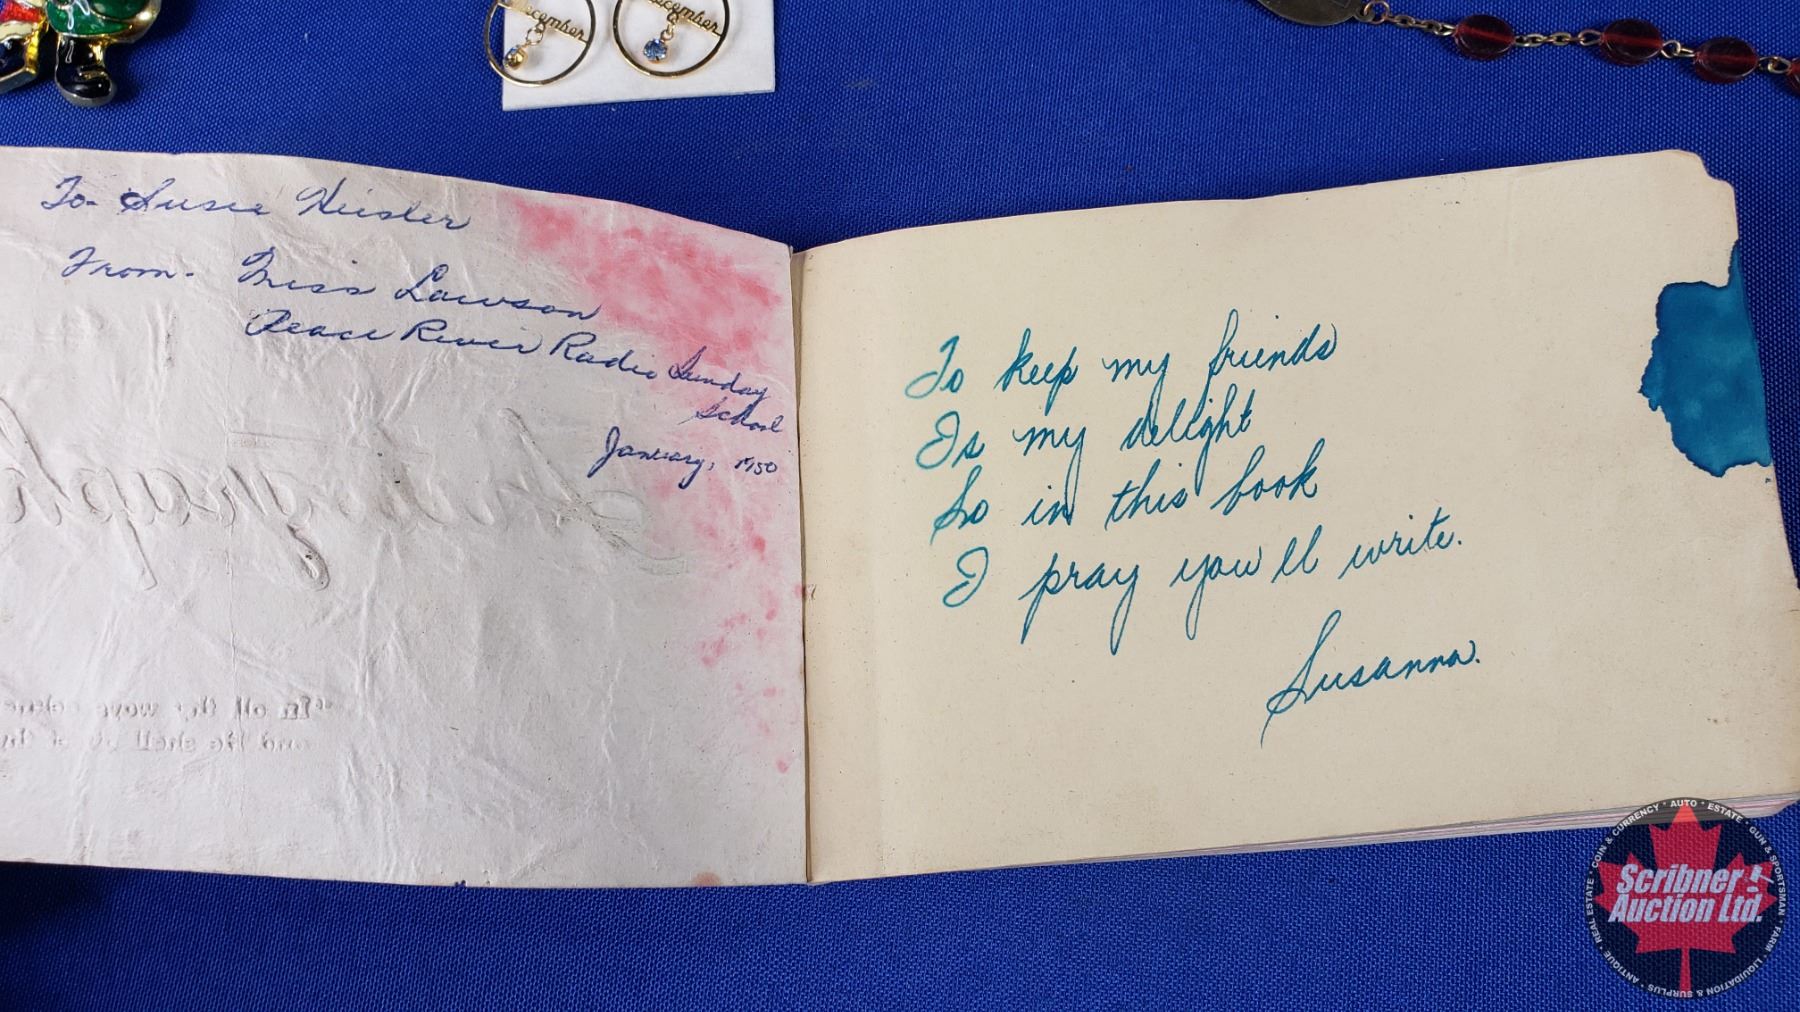 December
December
To- Susie Heisler
From- Miss Lawson
Peace River Radio Sunday
School
January, 1950
Autograph
"In all thy ways
and He shall
To keep my friends
Is my delight
So in this book
I pray you'll write.
Susanna.
Scribner
Auction Ltd.
COIN & CURRENCY * AUTO * ESTATE * GUN & SPORTSMAN * FARM * LIQUIDATION & SURPLUS * ANTIQUE * REAL ESTATE *